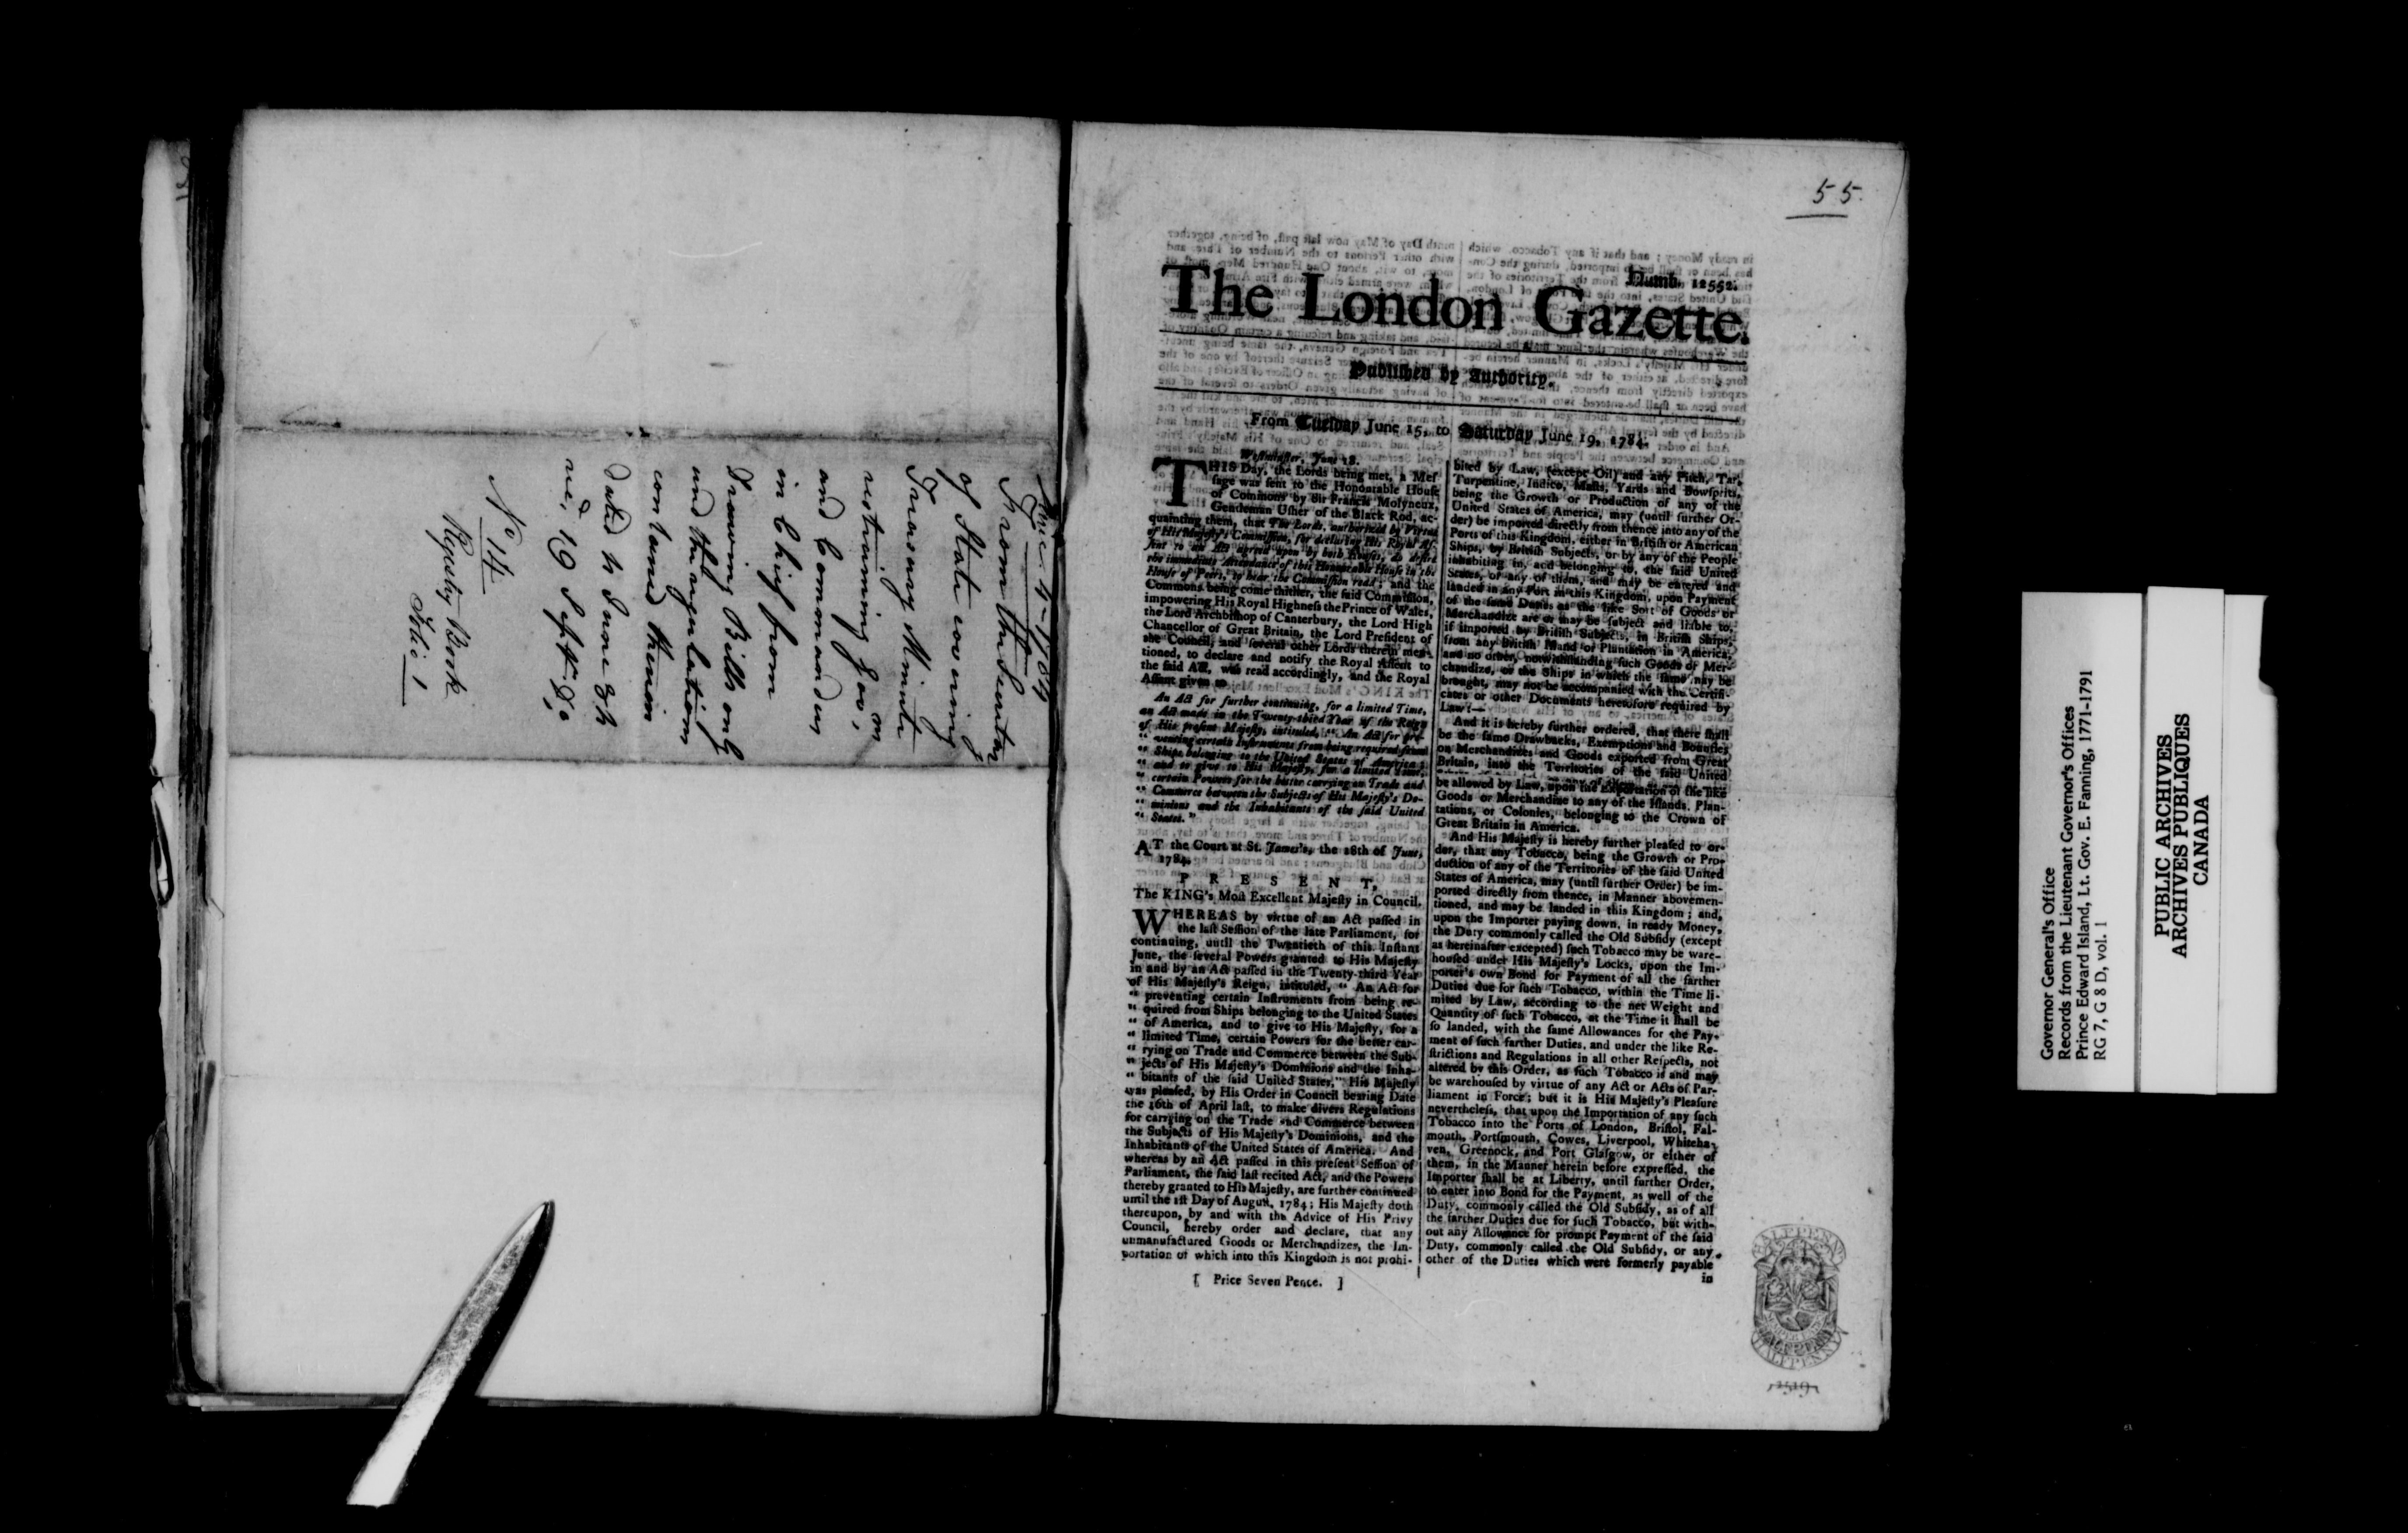 June 4 - 1784
From the Secretary
of State covering
Treasury Minute
restraining Gov.
and Commander
in Chief from
Drawing Bills only
under the regulations
contained therein
dated 4 June 84
rec.d 19 Sept.r Do
No 14
Registry Book
Folio 1
55
Numb. 12552.
The London Gazette.
Published by Authority.
From Tuesday June 15, to Saturday June 19, 1784.
Westminster, June 18.
THIS Day, the Lords being met, a Mes-
sage was sent to the Honourable House
of Commons by Sir Francis Molyneux,
Gentleman Usher of the Black Rod, ac-
quainting them, that The Lords, authorized by Virtue
of His Majesty's Commission, for declaring His Royal As-
sent to an Act agreed upon by both Houses, do desire
the immediate Attendance of this Honourable House in the
House of Peers, to hear the Commission read; and the
Commons being come thither, the said Commission,
impowering His Royal Highness the Prince of Wales,
the Lord Archbishop of Canterbury, the Lord High
Chancellor of Great Britain, the Lord President of
the Council, and several other Lords therein men-
tioned, to declare and notify the Royal Assent to
the said Act, was read accordingly, and the Royal
Assent given to
An Act for further continuing, for a limited Time,
an Act made in the Twenty-third Year of the Reign
of His present Majesty, intituled, "An Act for pre-
" venting certain Instruments from being required from
" Ships belonging to the United States of America;
" and to give to His Majesty, for a limited Time,
" certain Powers for the better carrying on Trade and
" Commerce between the Subjects of His Majesty's Do-
" minions and the Inhabitants of the said United
" States."
AT the Court at St. James's, the 18th of June,
1784,
PRESENT,
The KING's Most Excellent Majesty in Council.
WHEREAS by virtue of an Act passed in
the last Session of the late Parliament, for
continuing, until the Twentieth of this Instant
June, the several Powers granted to His Majesty
in and by an Act passed in the Twenty-third Year
of His Majesty's Reign, intituled, "An Act for
" preventing certain Instruments from being re-
" quired from Ships belonging to the United States
" of America, and to give to His Majesty, for a
" limited Time, certain Powers for the better car-
" rying on Trade and Commerce between the Sub-
" jects of His Majesty's Dominions and the Inha-
" bitants of the said United States," His Majesty
was pleased, by His Order in Council bearing Date
the 16th of April last, to make divers Regulations
for carrying on the Trade and Commerce between
the Subjects of His Majesty's Dominions, and the
Inhabitants of the United States of America. And
whereas by an Act passed in this present Session of
Parliament, the said last recited Act, and the Powers
thereby granted to His Majesty, are further continued
until the 1st Day of August, 1784; His Majesty doth
thereupon, by and with the Advice of His Privy
Council, hereby order and declare, that any
unmanufactured Goods or Merchandizes, the Im-
portation of which into this Kingdom is not prohi-
[ Price Seven Pence. ]
bited by Law, (except Oil) and any Pitch, Tar,
Turpentine, Indico, Masts, Yards and Bowsprits,
being the Growth or Production of any of the
United States of America, may (until further Or-
der) be imported directly from thence into any of the
Ports of this Kingdom, either in British or American
Ships, by British Subjects, or by any of the People
inhabiting in, and belonging to, the said United
States, or any of them, and may be entered and
landed in any Port in this Kingdom, upon Payment
of the same Duties as the like Sort of Goods or
Merchandize are or may be subject and liable to,
if imported by British Subjects, in British Ships,
from any British Island or Plantation in America,
and no other, notwithstanding such Goods or Mer-
chandize, or the Ships in which the same may be
brought, may not be accompanied with the Certifi-
cates or other Documents heretofore required by
Law:—
And it is hereby further ordered, that there shall
be the same Drawbacks, Exemptions and Bounties
on Merchandizes and Goods exported from Great
Britain, into the Territories of the said United
be allowed by Law, upon the Exportation of the like
Goods or Merchandize to any of the Islands, Plan-
tations, or Colonies, belonging to the Crown of
Great Britain in America.
And His Majesty is hereby further pleased to or-
der, that any Tobacco, being the Growth or Pro-
duction of any of the Territories of the said United
States of America, may (until further Order) be im-
ported directly from thence, in Manner abovemen-
tioned, and may be landed in this Kingdom; and,
upon the Importer paying down, in ready Money,
the Duty commonly called the Old Subsidy (except
as hereinafter excepted) such Tobacco may be ware-
housed under His Majesty's Locks, upon the Im-
porter's own Bond for Payment of all the farther
Duties due for such Tobacco, within the Time li-
mited by Law, according to the net Weight and
Quantity of such Tobacco, at the Time it shall be
so landed, with the same Allowances for the Pay-
ment of such farther Duties, and under the like Re-
strictions and Regulations in all other Respects, not
altered by this Order, as such Tobacco is and may
be warehoused by virtue of any Act or Acts of Par-
liament in Force; but it is His Majesty's Pleasure
nevertheless, that upon the Importation of any such
Tobacco into the Ports of London, Bristol, Fal-
mouth, Portsmouth, Cowes, Liverpool, Whiteha-
ven, Greenock, and Port Glasgow, or either of
them, in the Manner herein before expressed, the
Importer shall be at Liberty, until further Order,
to enter into Bond for the Payment, as well of the
Duty, commonly called the Old Subsidy, as of all
the farther Duties due for such Tobacco, but with-
out any Allowance for prompt Payment of the said
Duty, commonly called the Old Subsidy, or any
other of the Duties which were formerly payable
in
HALFPENNY
HALFPENNY
Governor General's Office
Records from the Lieutenant Governor's Offices
Prince Edward Island, Lt. Gov. E. Fanning, 1771-1791
RG 7, G 8 D, vol. 1
PUBLIC ARCHIVES
ARCHIVES PUBLIQUES
CANADA